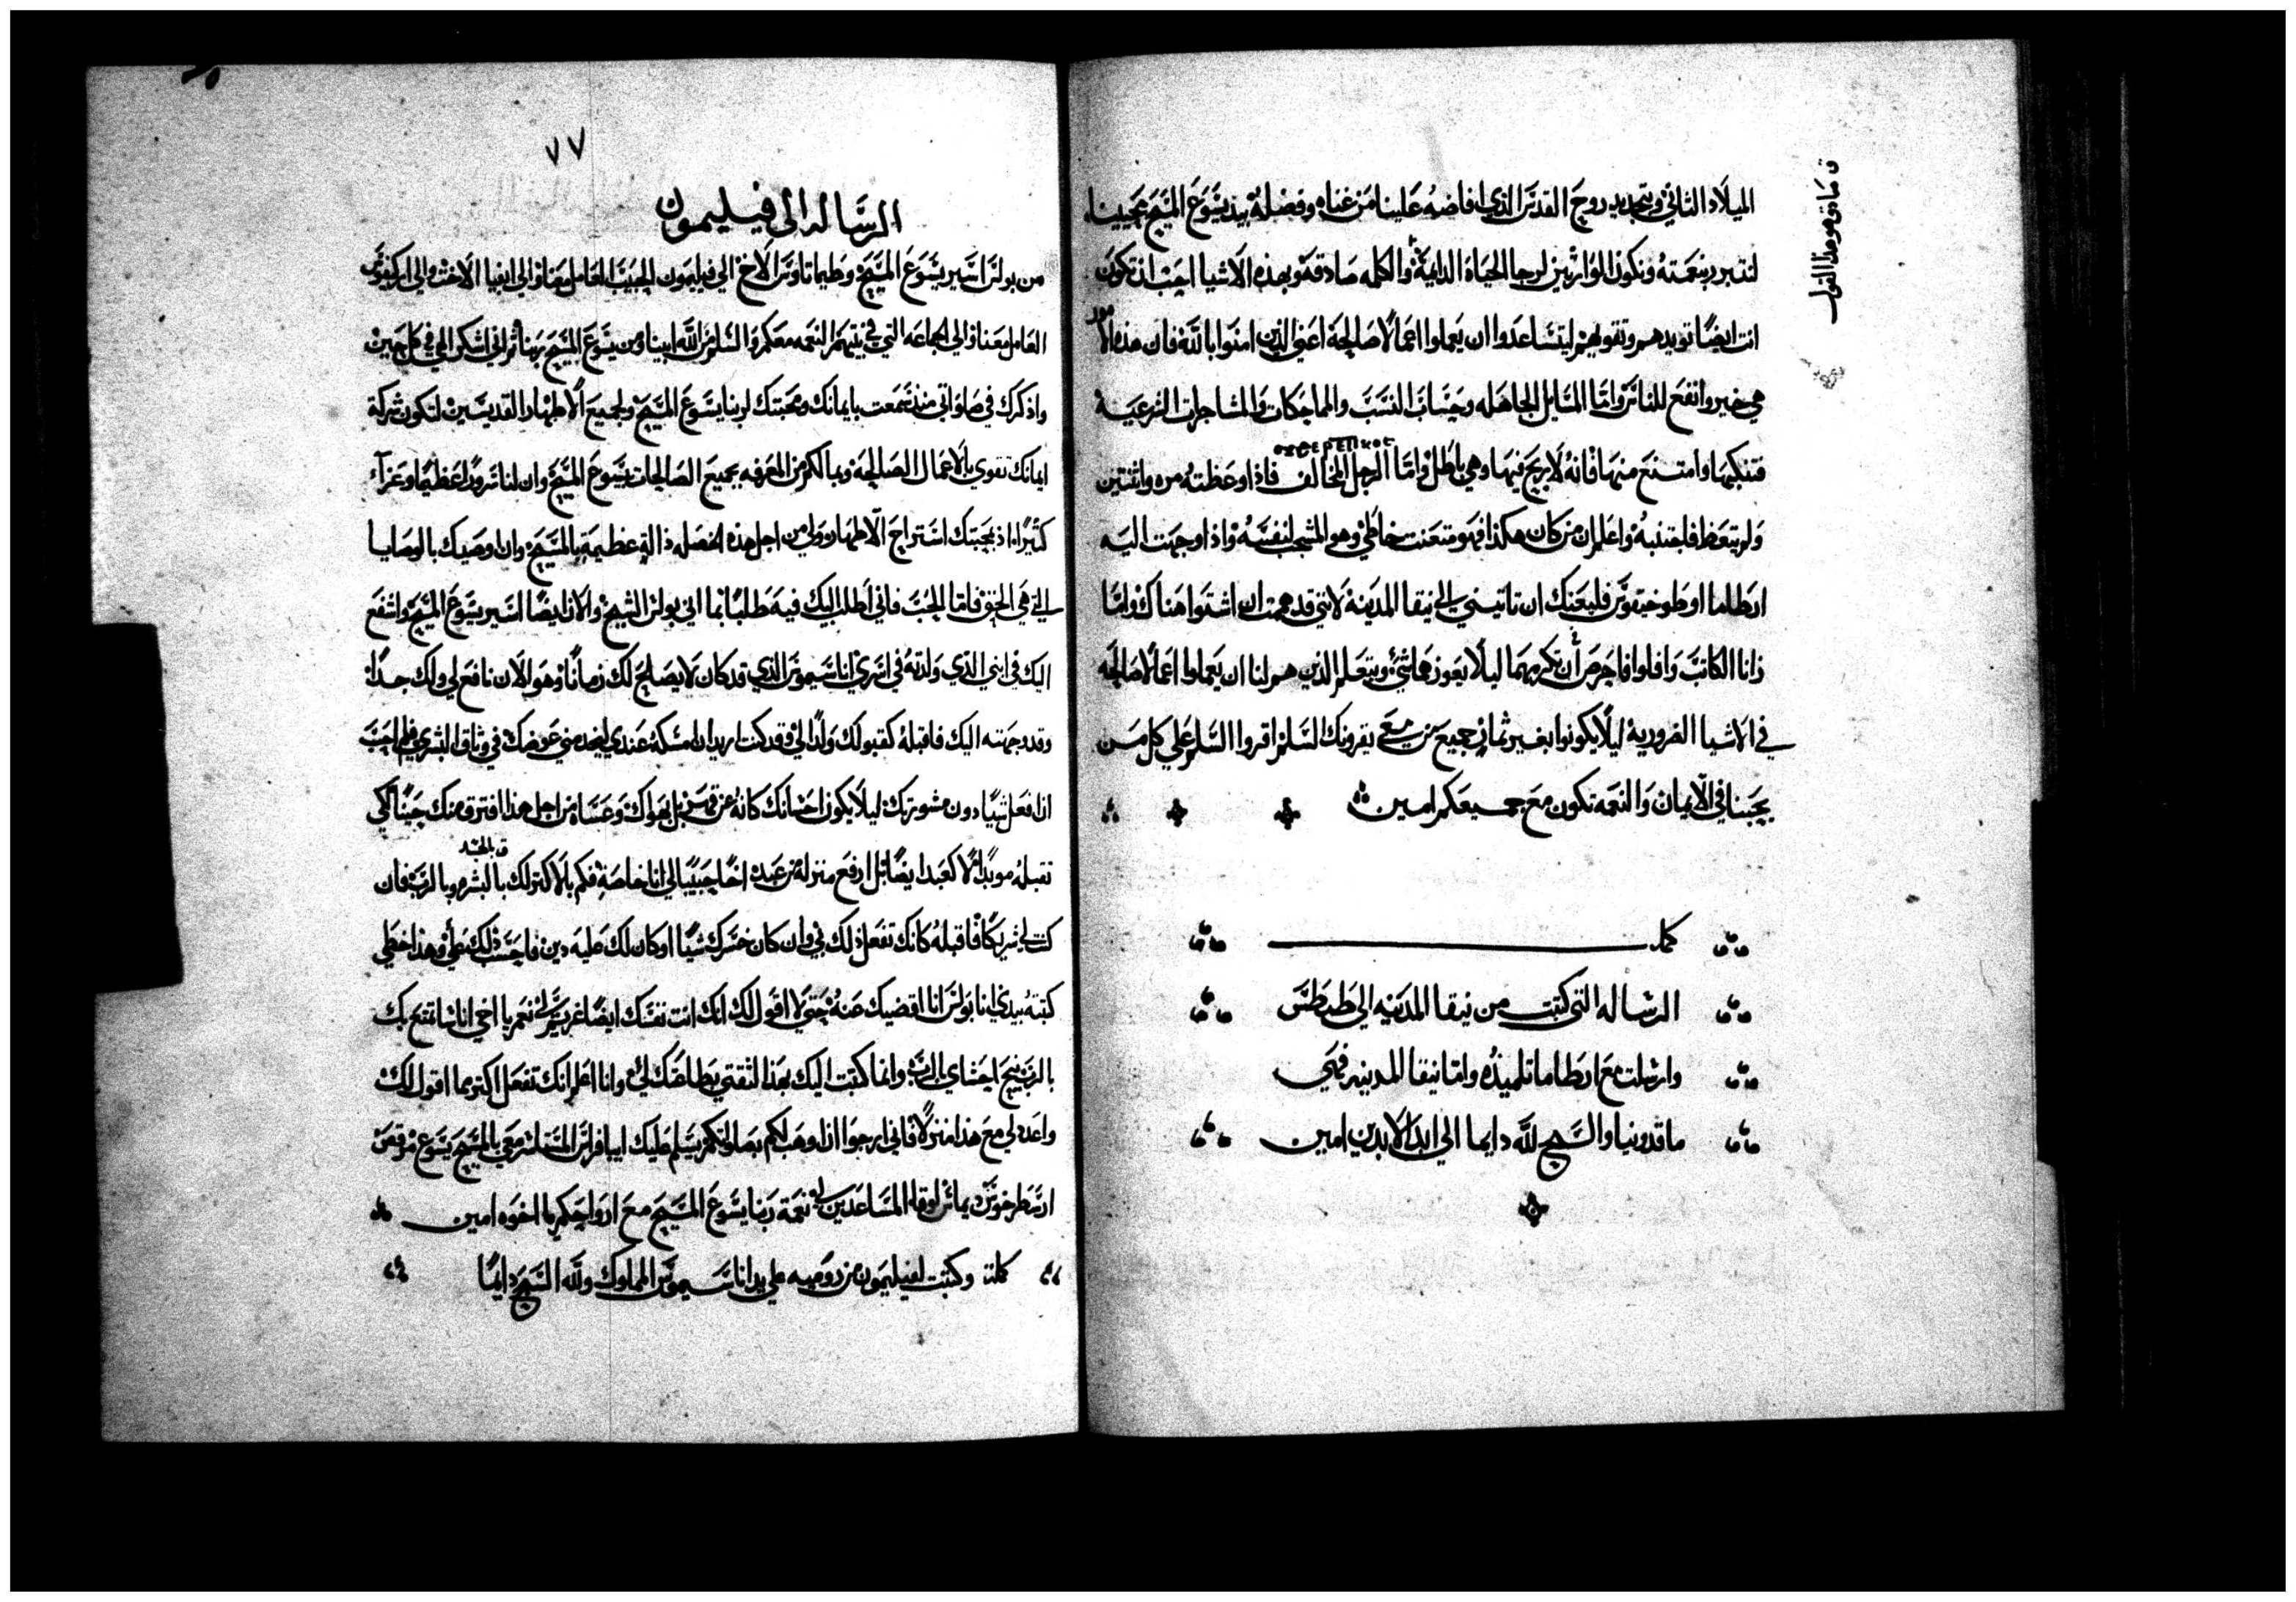 الميلاد الثاني وبتجديد روح القدس الذي افاضه علينا من غناه وفضله بيد يسوع المسيح محيينا
لنتبرر بنعمته ونكون الوارثين لرجا الحياة الدايمة والكلمه صادقة وبهذه الاشيا احب ان تكون
انت ايضا تويدهم وتقويهم ليتساعدوا ان يعملوا اعمالا صالحة اعني الذين امنوا بالله فان هذه الامور
هي خير وانفع للناس واما المسايل الجاهله وحساب النسب والمماحكات والمشاجرات الشرعية
فتنكبها وامتنع منها فانه لا ربح فيها وهي باطل واما الرجل المخالف فاذا وعظته مره واثنتين
ولم يتعظ فاجتنبه واعلم ان من كان هكذا فهو متعنت خاطي وهو المشجب لنفسه واذا وجهت اليه
ارطاما او طوخيقوس فليعنك ان تاتيني الي نيقا المدينة لانني قد هممت ان اشتوا هناك واما
زانا الكاتب وافلوا فاحرص أن تكرمهما ليلا يعوزهما شئ ويتعلم الذين هم لنا ان يعملوا اعمالا صالحه
في الاشيا الضرورية ليلا يكونوا بغير ثمار جميع من معي يقرونك السلم اقروا السلم علي كل من
يحبنا في الايمان والنعمه تكون مع جميعكم امين
كمل
الرساله التي كتبت من نيقا المدينه الي طيطس
وارسلت مع ارطاما تلميذه واما نيقا المدينه فهي
ماقدونيا والسبح لله دايما الي ابد الابدين امين
٧٧
الرساله الى فيليمون
من بولس اسير يسوع المسيح وطيماتاوس الاخ الي فيليمون الحبيب العامل معنا والي ابفيا الاخت والي اركيفوس
العامل معنا والي الجماعه التي في بيتهم النعمه معكم والسلم من الله ابينا ومن يسوع المسيح ربنا ثم اني اشكر الهي في كل حين
واذكرك في صلواتي منذ سمعت بايمانك ومحبتك لربنا يسوع المسيح ولجميع الاطهار القديسين لتكون شركة
ايمانك تقوي بالاعمال الصالحة وبما لكم من المعرفه بجميع الصالحات بيسوع المسيح وان لنا سرورا عظيما وعزآء
كثيرا اذ بمحبتك استراح الاطهار ولي من اجل هذه الخصله دالة عظيمة بالمسيح وان اوصيك بالوصايا
التي هي الحق فاما الحب فاني اطلب اليك فيه طلبا بما اني بولس الشيخ والان ايضا اسير يسوع المسيح واشفع
اليك في ابني الذي ولدته في اسري اناسيموس الذي قد كان لا يصلح لك زمانا وهو الان نافع لي ولك جدا
وقد وجهته اليك فاقبله كقبولك ولدا لي وقد كنت اريد ان امسكه عندي ليخدمني عوضك في وثاق البشري فلم احب
ان افعل شيا دون مشورتك ليلا يكون احسانك كانه عن قسر بل بهواك وعساه من اجل هذا افترق منك حينا لكي
تقبله موبدا لا كعبد ايضا بل ارفع منزلة من عبد اخا حبيبا لي انا خاصة فكم بالاكثر لك بالبشر وبالرب فان
كنت لي شريكا فاقبله كانك تفعل ذلك بي وان كان خسرك شيا او كان لك عليه دين فاحسب ذلك علي وهذا خطي
كتبته بيدي انا بولس انا اقضيك عنه حتي لا اقول لك انك انت نفسك ايضا نعم يا اخي انا استريح بك
بالرب نيح احشاي بالرب وانما كتبت اليك بهذا لثقتي بطاعتك لي وانا اعلم انك تفعل اكثر مما اقول لك
واعدد لي مع هذا منزلا فاني ارجوا ان اوهب لكم بصلواتكم يسلم عليك ابيافراس المستاسر معي بالمسيح يسوع مرقص
ارسطرخوس ديماس لوقا المساعدين لي نعمة ربنا يسوع المسيح مع ارواحكم يا اخوه امين
كملت وكتبت لفيليمون من روميه علي يد اناسيموس المملوك ولله السبح دايما